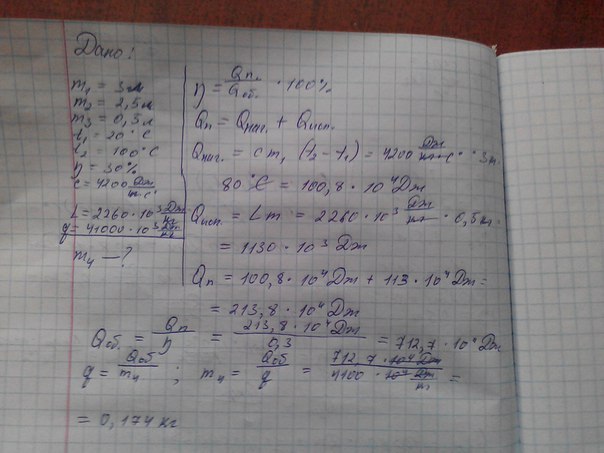 Дано:
m₁ = 3л
m₂ = 2,5л
m₃ = 0,5л
t₁ = 20°C
t₂ = 100°C
η = 30%
c = 4200 Дж/кг·°C
L = 2260 · 10³ Дж/кг
q = 41000 · 10³ Дж/кг
m₄ — ?
η = Qп./Qоб. · 100%
Qп = Qнаг. + Qисп.
Qнаг. = cm₁ (t₂ - t₁) = 4200 Дж/кг·°C · 3л ·
80°C = 100,8 · 10⁴ Дж
Qисп. = Lm = 2260 · 10³ Дж/кг · 0,5 кг
= 1130 · 10³ Дж
Qп = 100,8 · 10⁴ Дж + 113 · 10⁴ Дж =
= 213,8 · 10⁴ Дж
Qоб. = Qп/η = 213,8 · 10⁴ Дж/0,3 = 712,7 · 10⁴ Дж
q = Qоб/m₄ ; m₄ = Qоб/q = 712,7 · 10⁴ Дж/4100 · 10⁴ Дж/кг =
= 0,174 кг